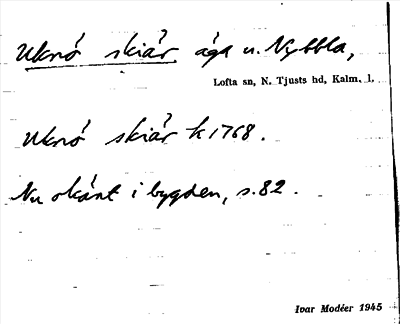 Uknö skiär, äga u. Nybbla,
Lofta sn, N. Tjusts hd, Kalm. l.
Uknö skiär k 1768.
Nu okänt i bygden, s. 82.
Ivar Modéer 1945